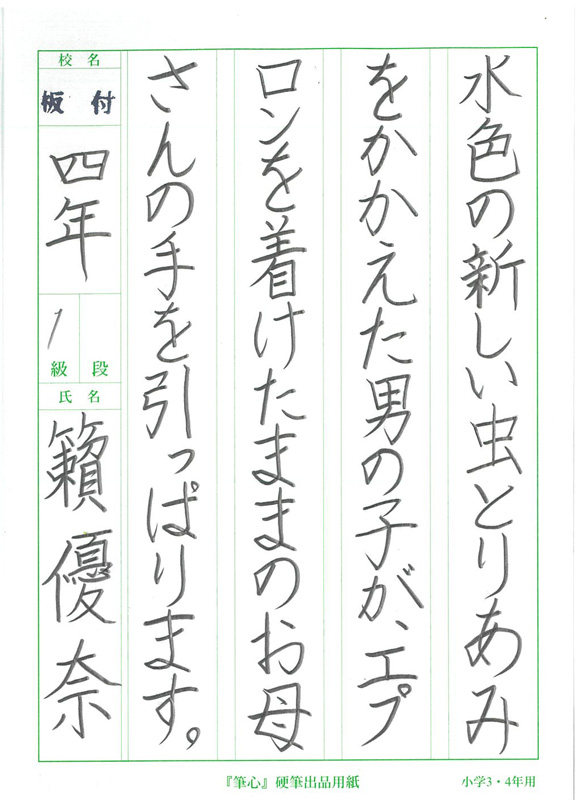 水色の新しい虫とりあみ
をかかえた男の子が、エプ
ロンを着けたままのお母
さんの手を引っぱります。
校名
板付
四年
1
級段
氏名
籟優奈
『筆心』硬筆出品用紙
小学3・4年用